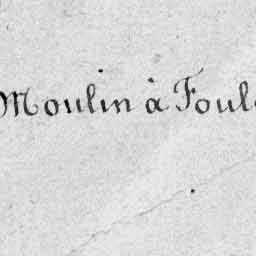 Moulin à Foul